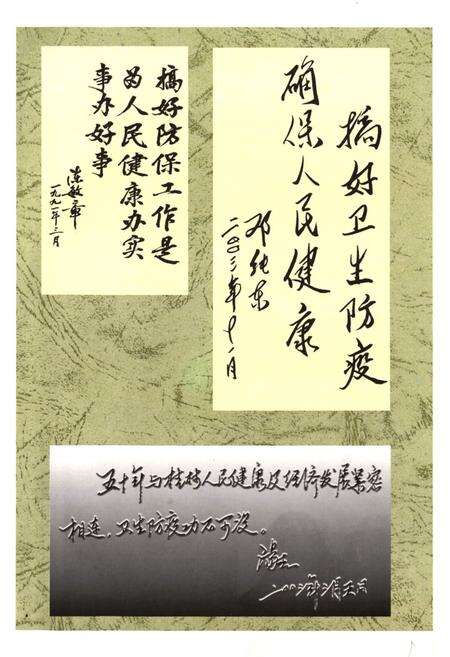 搞好卫生防疫
确保人民健康
邓纯东
二00三年十一月
搞好防保工作是
为人民健康办实
事办好事
陈敏章
一九九一年三月
五十年与桂林人民健康及经济发展紧密
相连,卫生防疫功不可没。